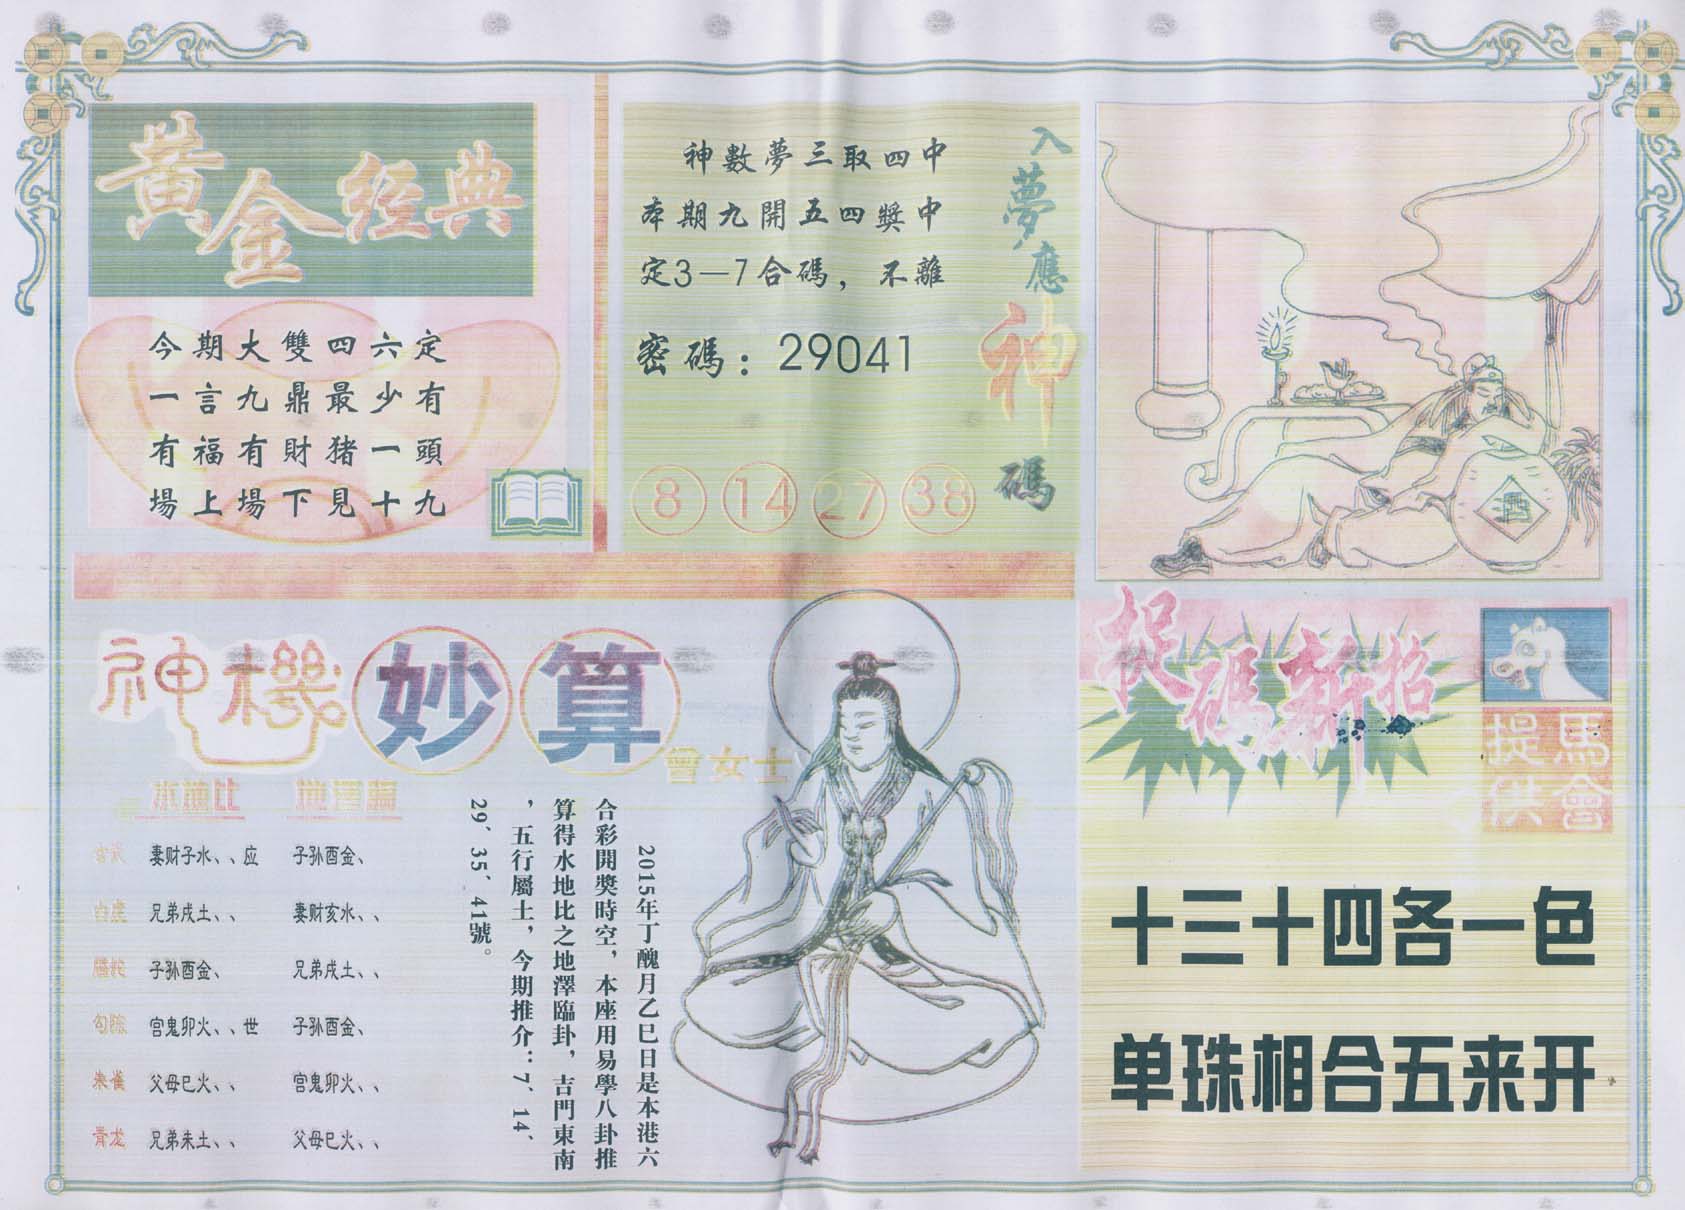 黃金經典
今期大雙四六定
一言九鼎最少有
有福有財猪一頭
場上場下見十九
入夢應神碼
神數夢三取四中
本期九開五四獎中
定3—7合碼，不離
密碼：29041
8 14 27 38
神機妙算
曾女士
水地比 地澤臨
妻财子水、、应 子孙酉金、
白虎 兄弟戌土、、 妻财亥水、、
螣蛇 子孙酉金、 兄弟戌土、、
勾陈 宫鬼卯火、、世 子孙酉金、
朱雀 父母巳火、、 宫鬼卯火、、
青龙 兄弟未土、、 父母巳火、、
2015年丁醜月乙巳日是本港六
合彩開獎時空，本座用易學八卦推
算得水地比之地澤臨卦，吉門東南
，五行屬土，今期推介：7、14、
29、35、41號。
捉碼新招
馬會
提供
十三十四各一色
单珠相合五来开